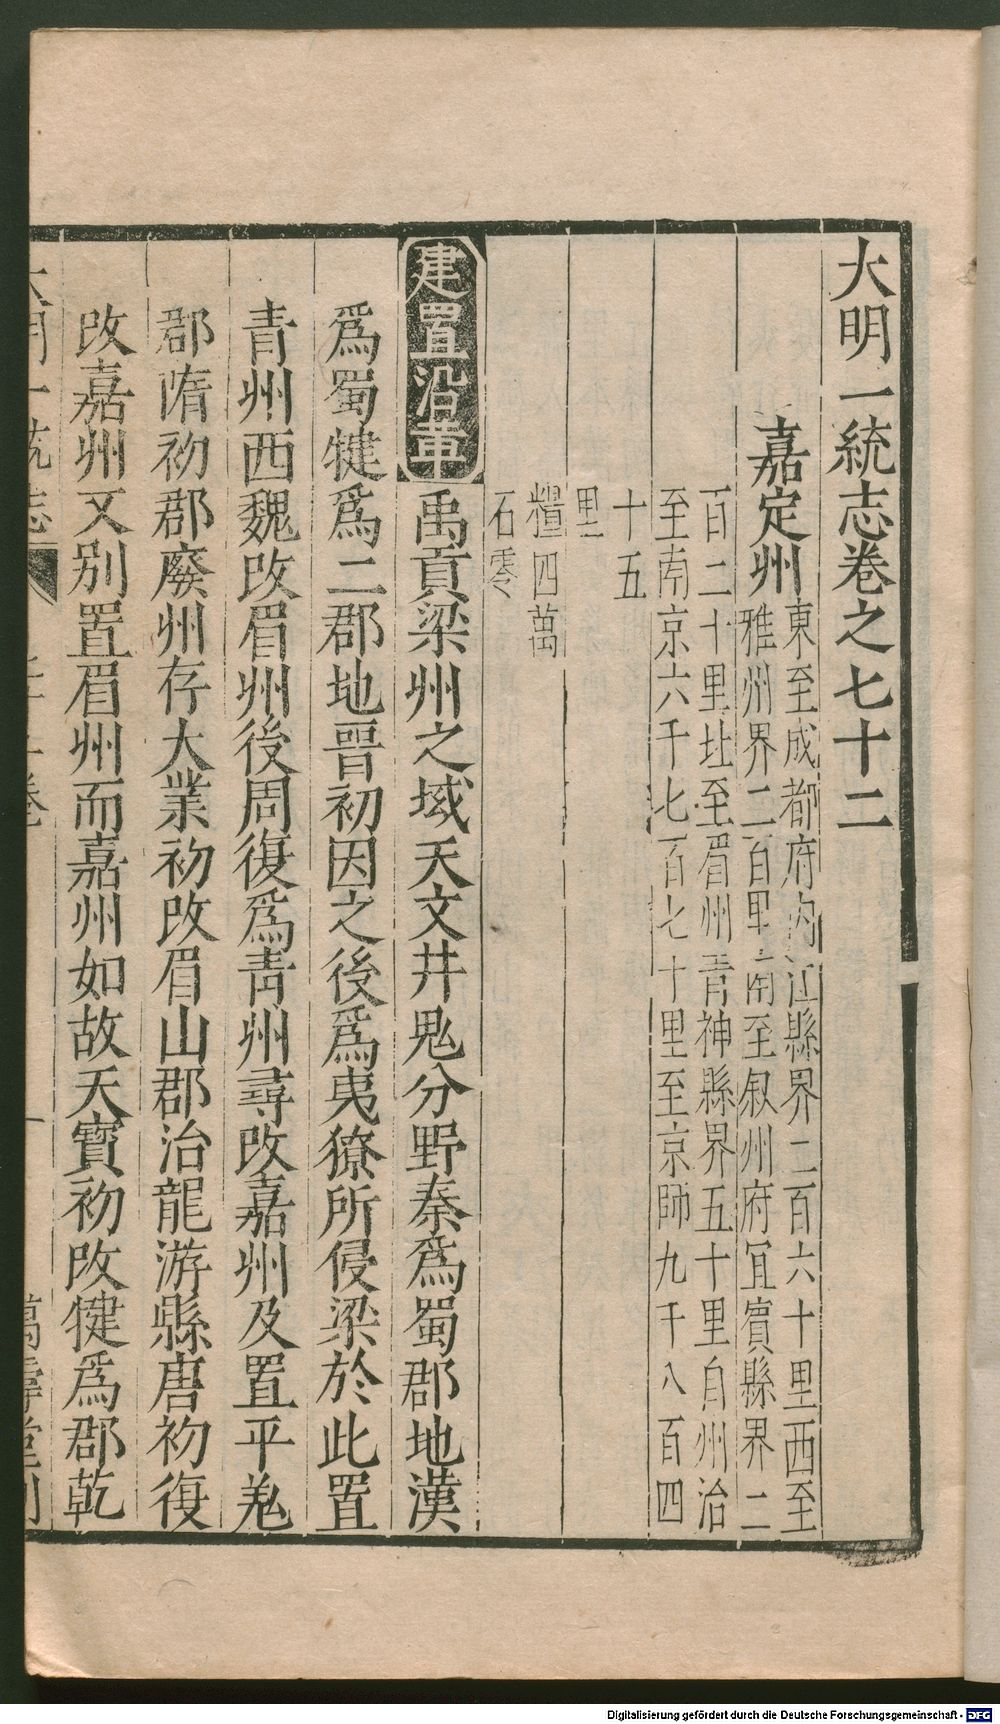 大明一統志卷之七十二
嘉定州
東至成都府內江縣界二百六十里西至
雅州界二百里南至叙州府宜賓縣界二
百二十里北至眉州青神縣界五十里自州治
至南京六千七百七十里至京師九千八百四
十五
里
糧四萬
石零
建置沿革 禹貢梁州之域天文井鬼分野秦爲蜀郡地漢
爲蜀犍爲二郡地晉初因之後爲夷獠所侵梁於此置
青州西魏改眉州後周復爲青州尋改嘉州及置平羗
郡隋初郡廢州存大業初改眉山郡治龍游縣唐初復
改嘉州又别置眉州而嘉州如故天寶初改犍爲郡乾
大明一統志
卷
一
萬壽堂刊
Digitalisierung gefördert durch die Deutsche Forschungsgemeinschaft - DFG